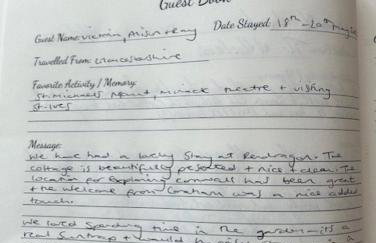 Guest Book
Guest Name: Victoria, Alison + Ray Date Stayed: 18th - 20th May
Travelled From: Gloucestershire
Favorite Activity / Memory:
St Michaels Mount, Minack Theatre + visiting
St. Ives
Message:
We have had a lovely stay at Pendragon. The
cottage is beautifully presented + nice + clean. The
location for exploring cornwall has been great
+ the welcome from Graham was a nice added
touch.
We loved spending time in the garden - its a
real suntrap + would be